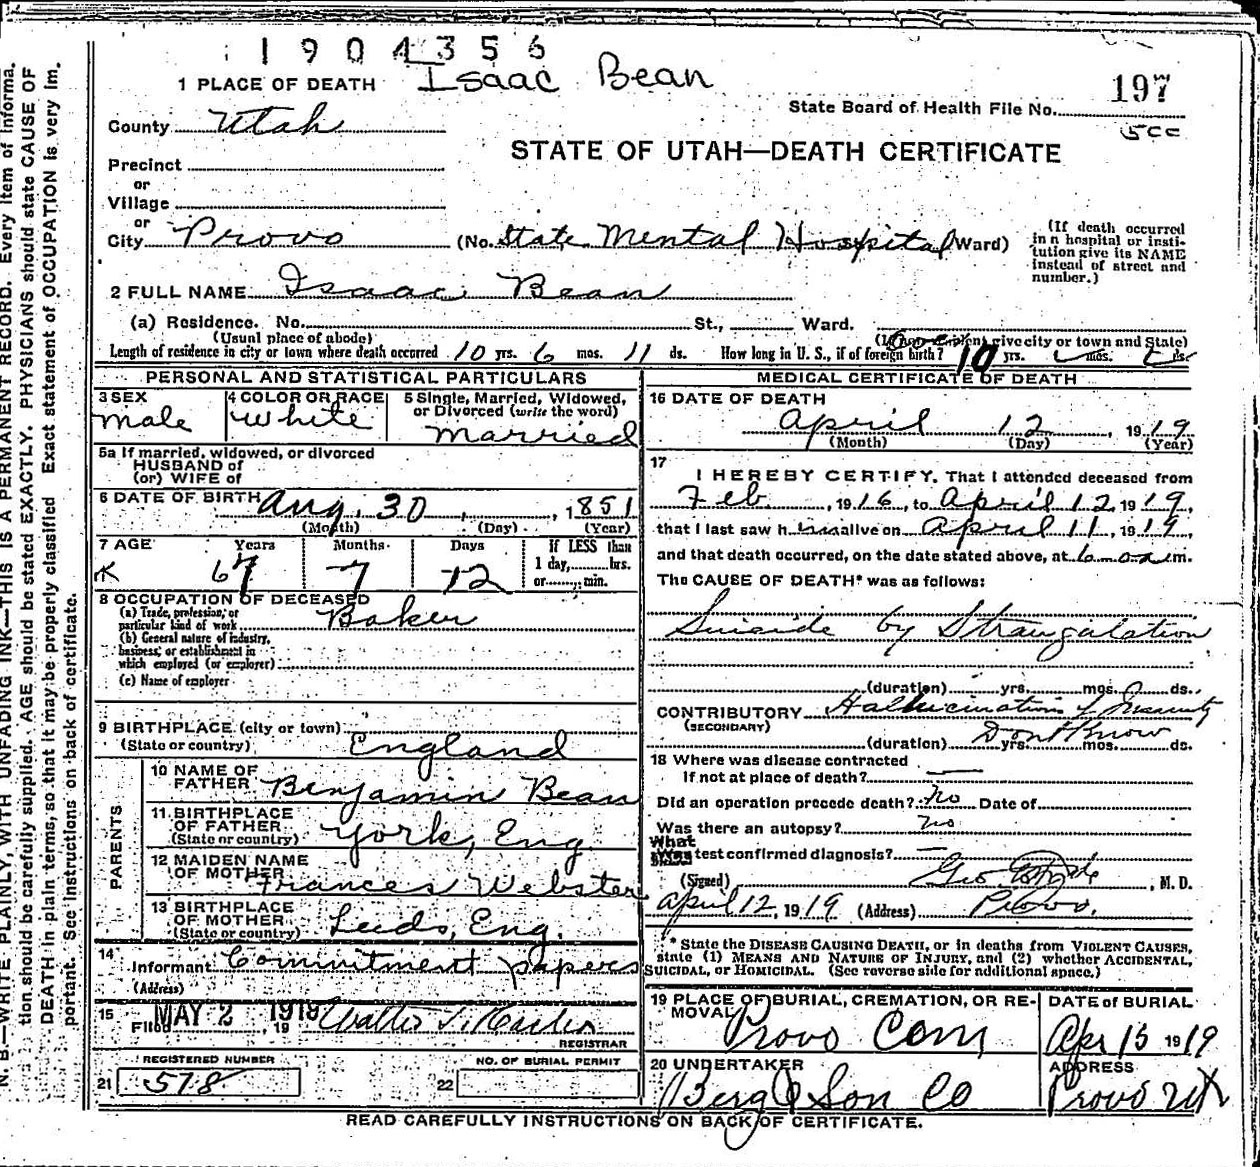 1904356
Isaac Bean
197
1 PLACE OF DEATH
State Board of Health File No.
County Utah
STATE OF UTAH—DEATH CERTIFICATE
Precinct
or
Village
or
City Provo (No. State Mental Hospital Ward)
(If death occurred in a hospital or insti-
tution give its NAME
instead of street and
number.)
2 FULL NAME Isaac Bean
(a) Residence. No. St., Ward.
(Usual place of abode) give city or town and State)
Length of residence in city or town where death occurred 10 yrs. 6 mos. 11 ds. How long in U. S., if of foreign birth? 10 yrs. mos. ds.
PERSONAL AND STATISTICAL PARTICULARS
3 SEX 4 COLOR OR RACE 5 Single, Married, Widowed,
or Divorced (write the word)
Male White Married
5a If married, widowed, or divorced
HUSBAND of
(or) WIFE of
6 DATE OF BIRTH Aug. 30, 1851
(Month) (Day) (Year)
7 AGE Years Months Days If LESS than
1 day, hrs.
or min.
67 7 12
8 OCCUPATION OF DECEASED
(a) Trade, profession, or
particular kind of work Baker
(b) General nature of industry,
business, or establishment in
which employed (or employer)
(c) Name of employer
9 BIRTHPLACE (city or town)
(State or country) England
PARENTS
10 NAME OF
FATHER Benjamin Bean
11 BIRTHPLACE
OF FATHER
(State or country) York, Eng.
12 MAIDEN NAME
OF MOTHER Frances Webster
13 BIRTHPLACE
OF MOTHER
(State or country) Leeds, Eng.
14
Informant Commitment papers
(Address)
15
Filed MAY 2, 1919 Walter
REGISTRAR
REGISTERED NUMBER NO. OF BURIAL PERMIT
21 578 22
MEDICAL CERTIFICATE OF DEATH
16 DATE OF DEATH
April 12, 1919
(Month) (Day) (Year)
17
I HEREBY CERTIFY, That I attended deceased from
Feb., 1916, to April 12, 1919,
that I last saw him alive on April 11, 1919,
and that death occurred, on the date stated above, at 6 m.
The CAUSE OF DEATH* was as follows:
Suicide by Strangalation
(duration) yrs. mos. 0 ds.
CONTRIBUTORY Hallucination Insanity
(SECONDARY)
Dont Know
(duration) yrs. mos. ds.
18 Where was disease contracted
If not at place of death? —
Did an operation precede death? No Date of
Was there an autopsy? no
What test confirmed diagnosis? —
(Signed) Geo , M. D.
April 12, 1919 (Address) Provo.
* State the DISEASE CAUSING DEATH, or in deaths from VIOLENT CAUSES,
state (1) MEANS AND NATURE OF INJURY, and (2) whether ACCIDENTAL,
SUICIDAL, or HOMICIDAL. (See reverse side for additional space.)
19 PLACE OF BURIAL, CREMATION, OR RE-
MOVAL
DATE of BURIAL
Provo Cem Apr 15 1919
20 UNDERTAKER ADDRESS
Berg & Son Co Provo Ut
READ CAREFULLY INSTRUCTIONS ON BACK OF CERTIFICATE.
N. B.—WRITE PLAINLY, WITH UNFADING INK—THIS IS A PERMANENT RECORD. Every item of informa-
tion should be carefully supplied. AGE should be stated EXACTLY. PHYSICIANS should state CAUSE OF
DEATH in plain terms, so that it may be properly classified. Exact statement of OCCUPATION is very im-
portant. See instructions on back of certificate.